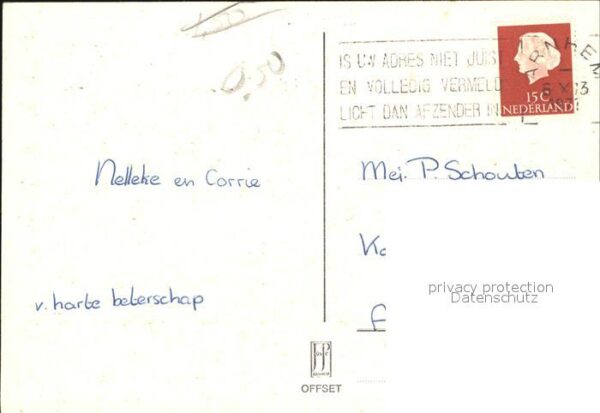 1,00
0,50
IS UW ADRES NIET JUIST
EN VOLLEDIG VERMELD
LICHT DAN AFZENDER IN
ARNHEM
15C
NEDERLAND
Nelleke en Corrie
v. harte beterschap
Mej. P. Schouten
privacy protection
Datenschutz
OFFSET